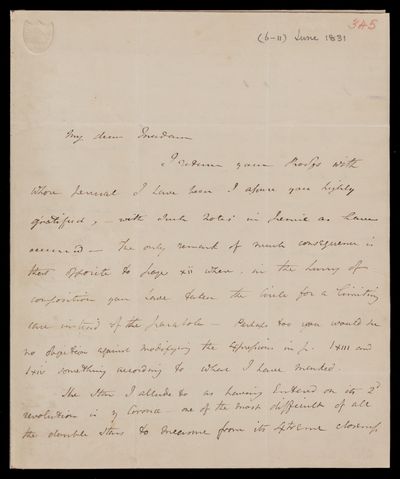 345
(6-11) June 1831
My dear Madam
I return your Proofs with
whose perusal I have been I assure you highly
gratified, – with such notes in Pencil as have
occurred – The only remark of much consequence is
that opposite to page xii where in the hurry of
composition you have taken the Circle for a limiting
case instead of the parabola – Perhaps too you would see
no objection against modifying the expressions in p. lxiii and
lxiv something according to what I have marked.
The Star I allude to as having entered on its 2d
revolution is η Coronae – one of the most difficult of all
the double stars to measure from its extreme closeness